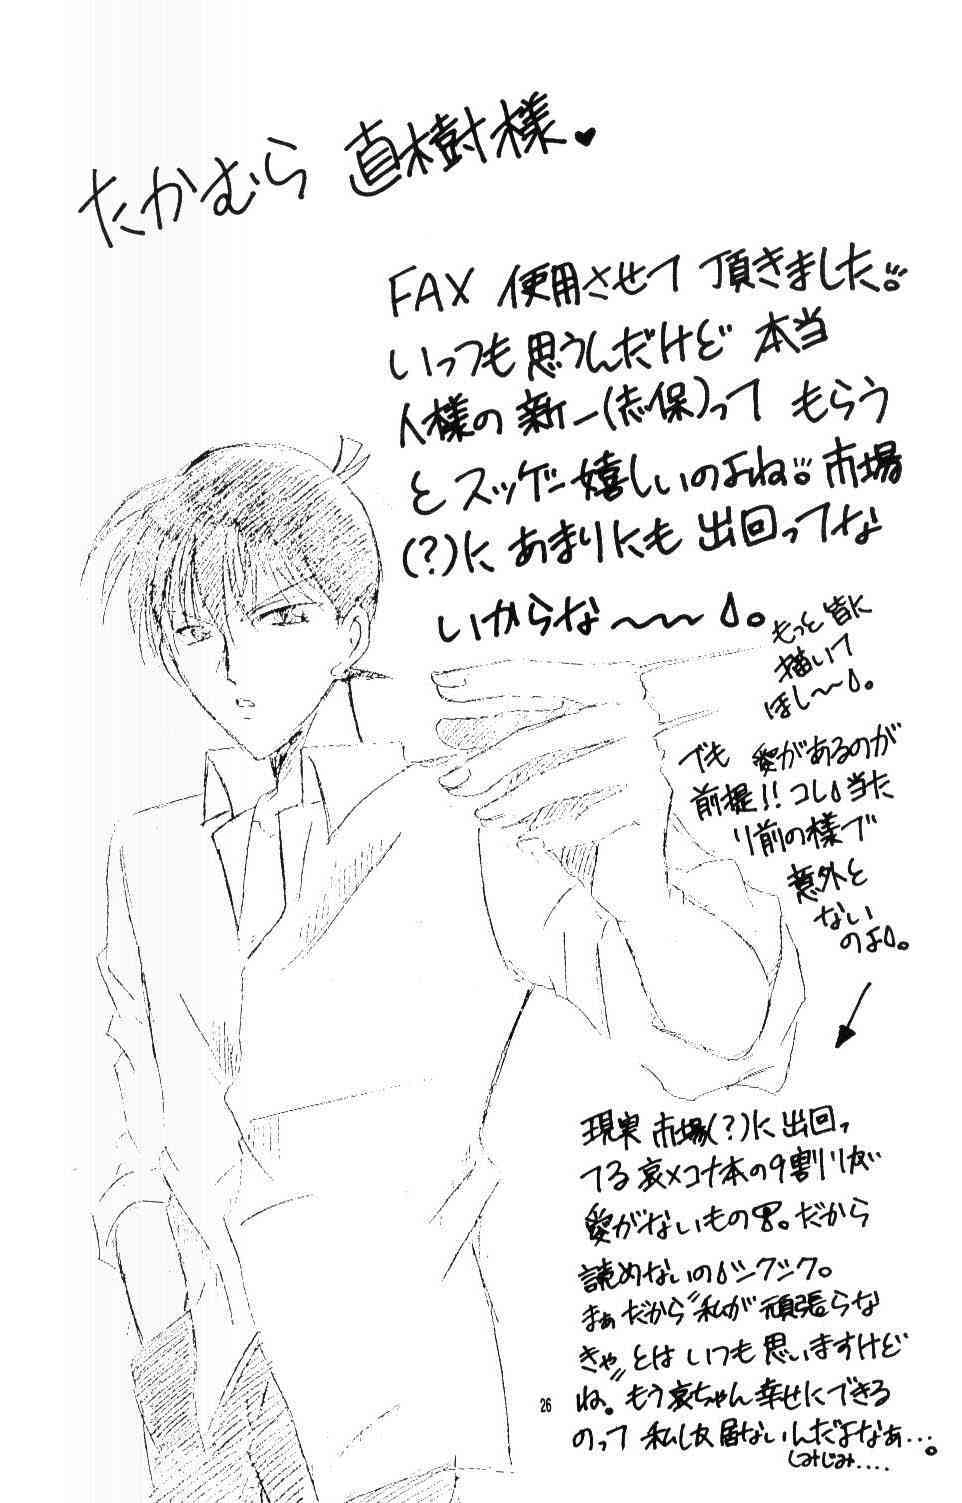 たかむら 直樹様♥
FAX 使用させて 頂きました。
いっつも思うんだけど 本当
人様の 新一(志保)って もらう
とスッゲー嬉しいのよね。市場
(?)に あまりにも 出回ってな
いからな〜〜。
もっと皆に
描いて
ほし〜〜。
でも 愛があるのが
前提!! コレ当た
り前の様で
意外と
ない
のよ。
現実 市場(?)に 出回っ
てる 哀×コナ本の9割りが
愛がないもの。だから
読めないのシクシク。
まぁだから“私が 頑張らな
きゃ”とは いつも 思いますけど
ね。もう哀ちゃん 幸せにできる
のって 私しか居ないんだよなぁ…。
しみじみ‥‥
26